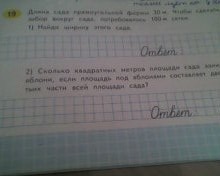 19
Длина сада прямоугольной формы 30 м. Чтобы сделать
забор вокруг сада, потребовалось 160 м сетки.
1) Найди ширину этого сада.
Ответ:
2) Сколько квадратных метров площади сада
яблони, если площадь под яблонями составляет
тых части всей площади сада?
Ответ: